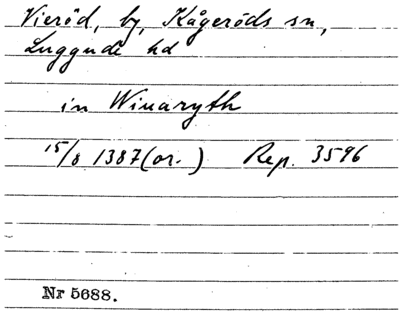 Vieröd, by, Kågeröds sn,
Luggude hd
in Winaryth
15/8 1387 (or.) Rep. 3596
Nr 5688.